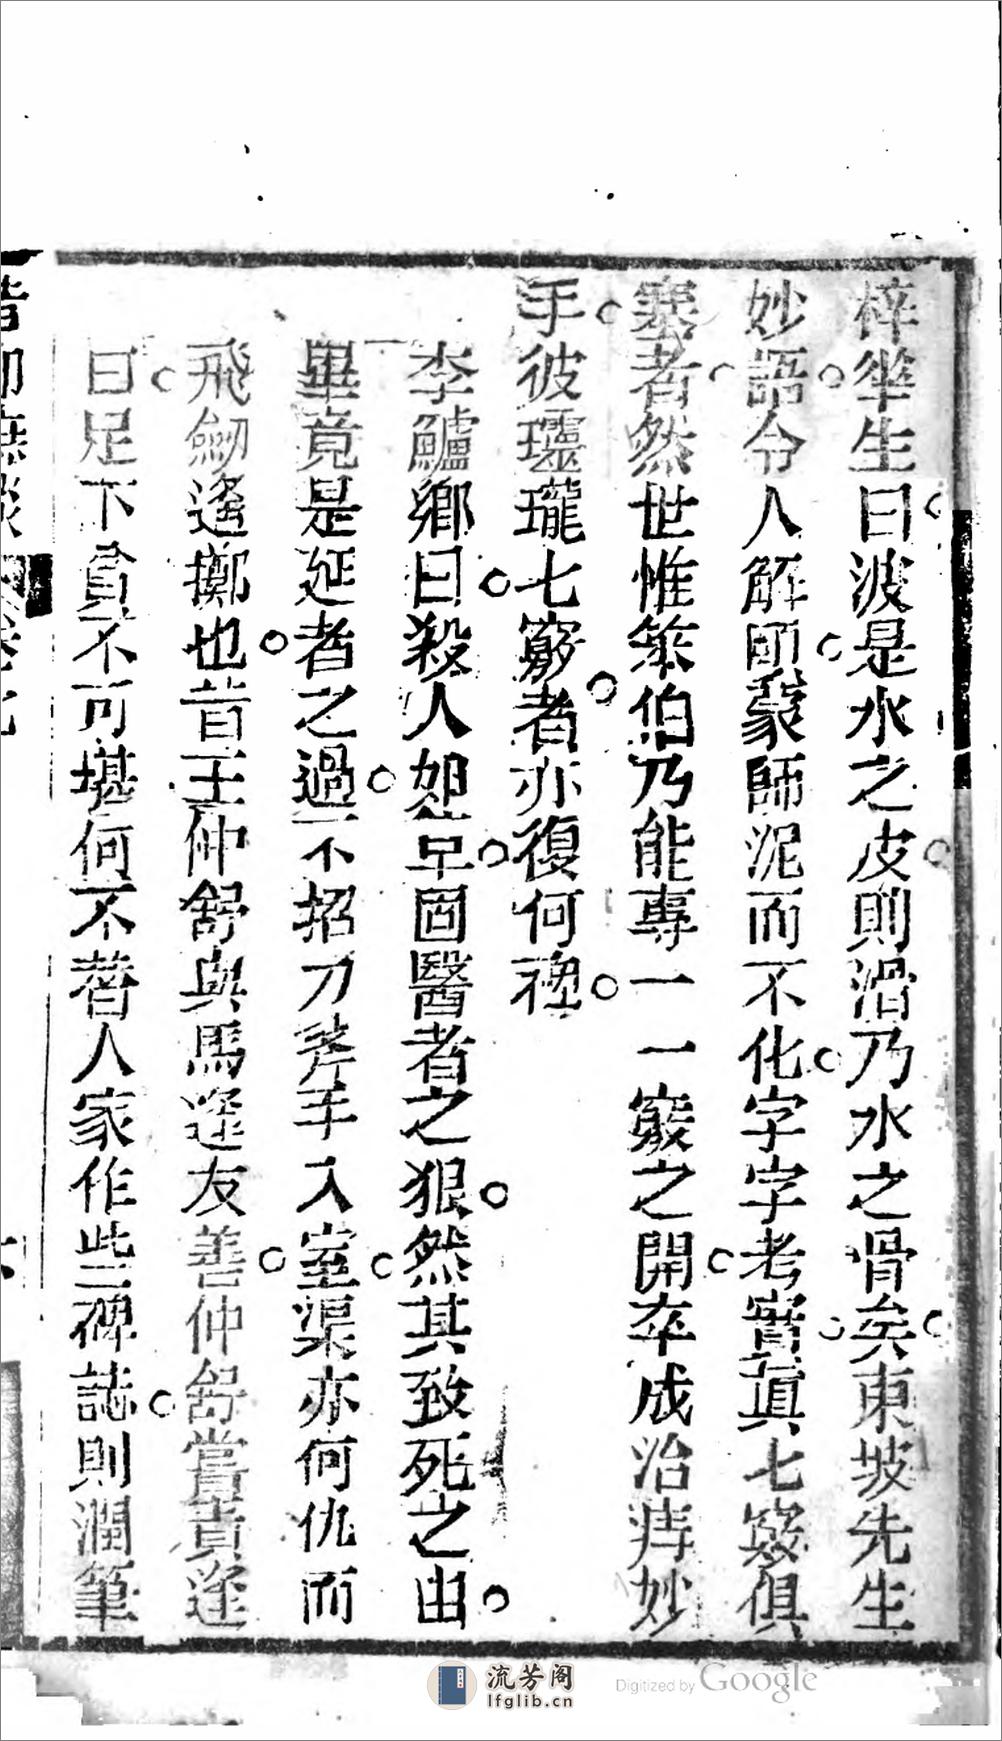 梓崋生曰波是水之皮則滑乃水之骨矣東坡先生
妙語令人解頤蒙師泥而不化字字考實眞七竅俱
塞者然世惟笨伯乃能專一一竅之開卒成治痔妙
手彼瓏瓏七竅者亦復何裨
李鱸鄉曰殺人如草固醫者之狠然其致死之由
畢竟是延者之過不招刀斧手入室渠亦何仇而
飛劒遙擲也昔王仲舒與馬逢友善仲舒嘗責逢
曰足下貧不可堪何不替人家作些碑誌則潤筆
流芳阁
lfglib.cn
Digitized by Google